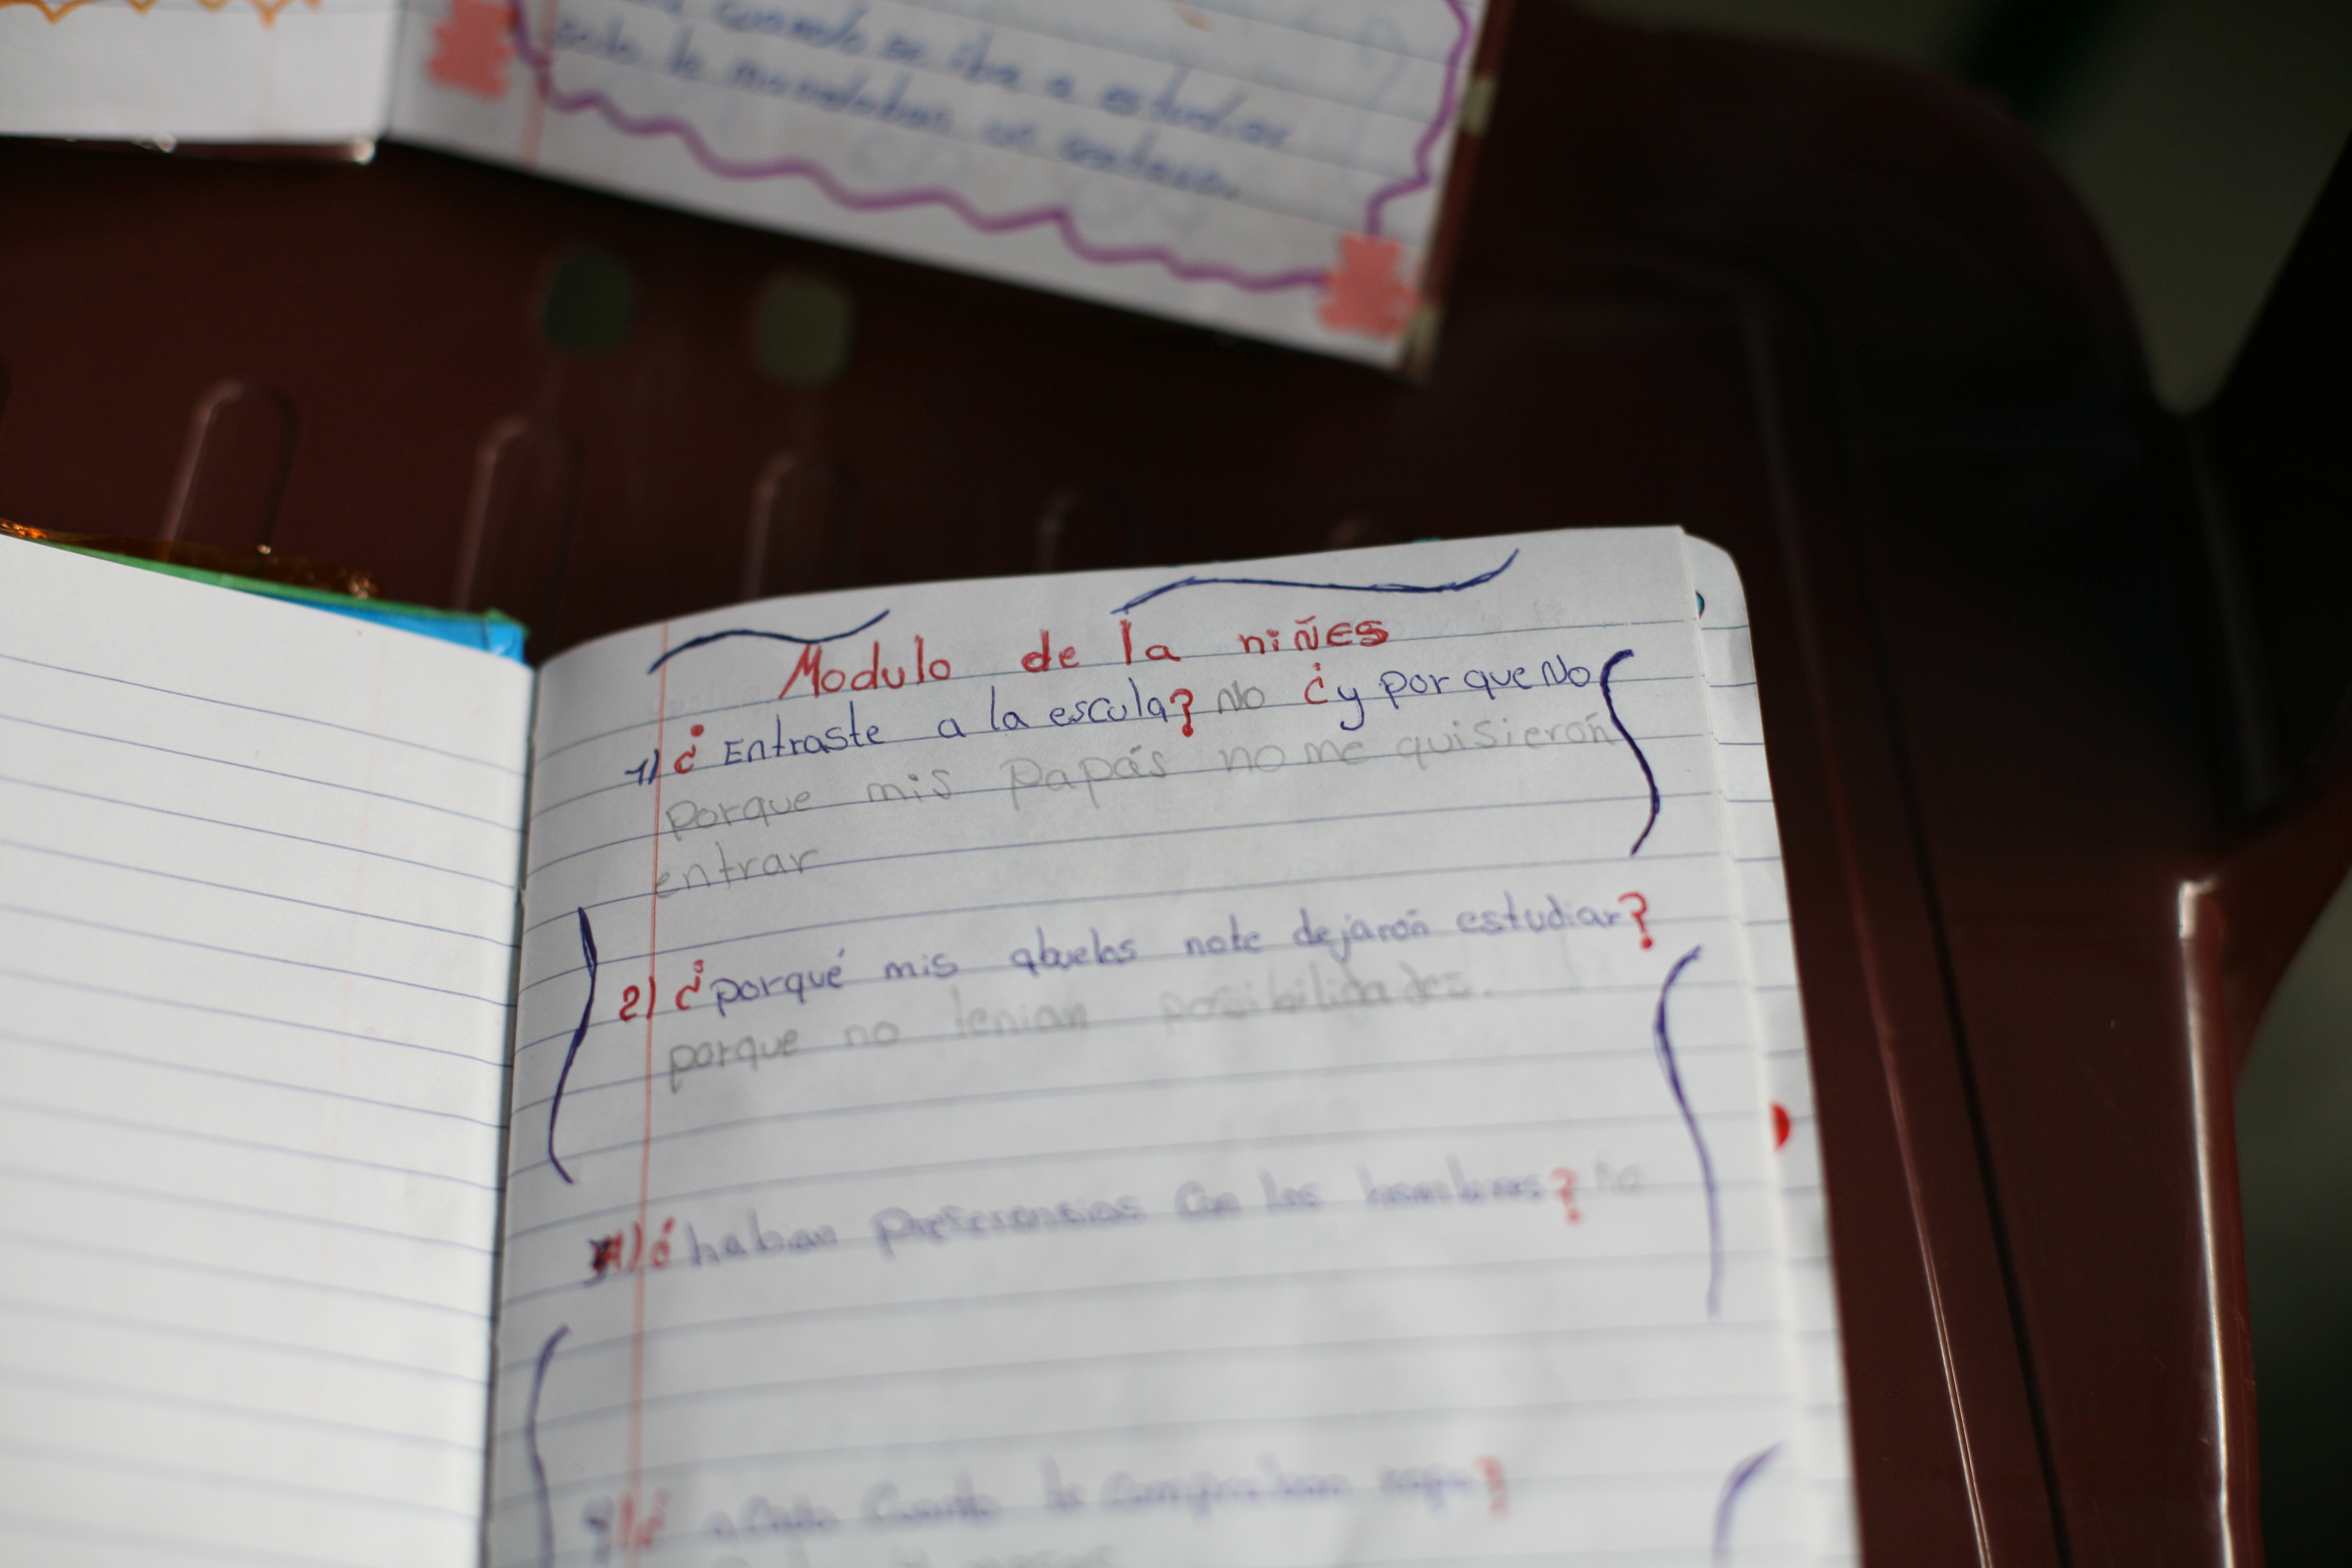 cuando se iba a estudiar
solo le mandaban un
Modulo de la niñes
1) ¿Entraste a la escula? No ¿y por que No
Porque mis Papás no me quisieroñ
entrar
2) ¿porqué mis abuelos note dejaroñ estudiar?
porque no tenian posibilidades.
¿habian preferencias con los hombres? No
¿ cuanto le compraban ropa?